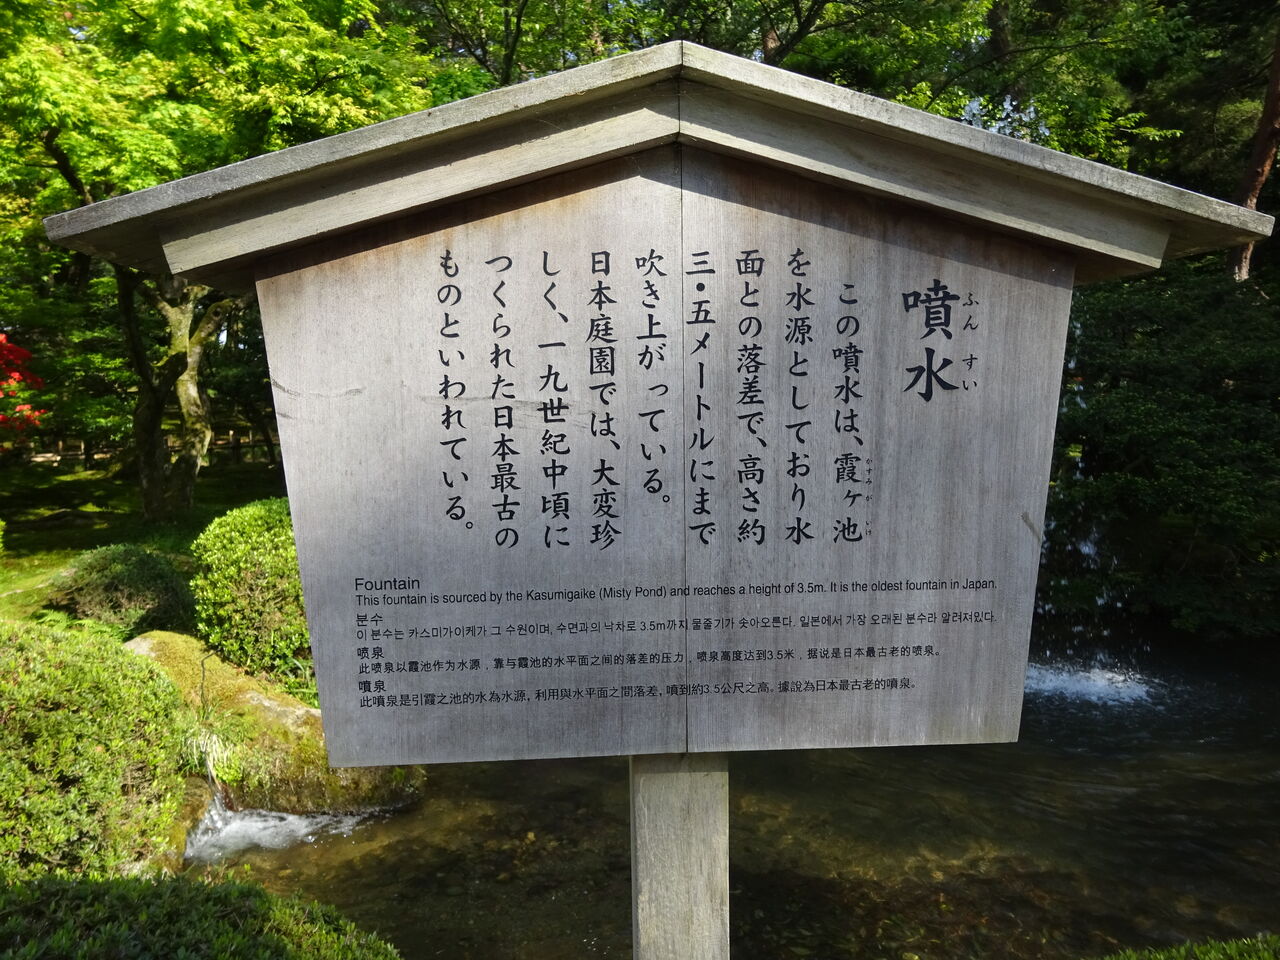 噴水
ふんすい
この噴水は、霞ヶ池
かすみがいけ
を水源としており水
面との落差で、高さ約
三・五メートルにまで
吹き上がっている。
日本庭園では、大変珍
しく、一九世紀中頃に
つくられた日本最古の
ものといわれている。
Fountain
This fountain is sourced by the Kasumigaike (Misty Pond) and reaches a height of 3.5m. It is the oldest fountain in Japan.
분수
이 분수는 카스미가이케가 그 수원이며, 수면과의 낙차로 3.5m까지 물줄기가 솟아오른다. 일본에서 가장 오래된 분수라 알려져있다.
喷泉
此喷泉以霞池作为水源，靠与霞池的水平面之间的落差的压力，喷泉高度达到3.5米，据说是日本最古老的喷泉。
噴泉
此噴泉是引霞之池的水為水源, 利用與水平面之間落差, 噴到約3.5公尺之高。據說為日本最古老的噴泉。